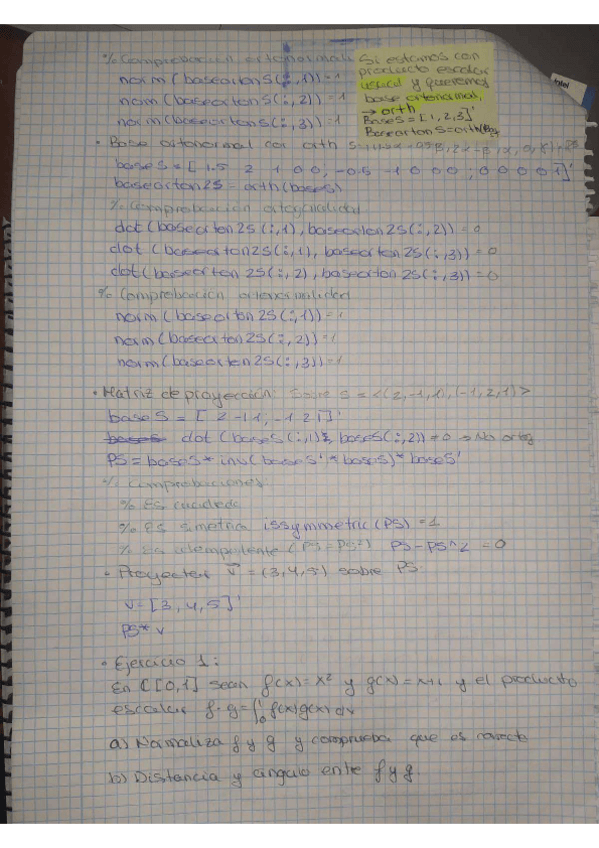 % Comprobación ortonormalidad
norm(baseortonS(:,1))=1
norm(baseortonS(:,2))=1
norm(baseortonS(:,3))=1
Si estamos con
producto escalar
usual y queremos
base ortonormal,
→ orth
BaseS=[1,2,3]'
BaseortonS=orth(
intel
• Base ortonormal con orth
baseS=[1.5 2 1 0 0; -0.5 -1 0 0 0; 0 0 0 0 1]'
baseorton2S=orth(baseS)
% Comprobación ortogonalidad
dot(baseorton2S(:,1),baseorton2S(:,2))=0
dot(baseorton2S(:,1),baseorton2S(:,3))=0
dot(baseorton2S(:,2),baseorton2S(:,3))=0
% Comprobación ortonormalidad
norm(baseorton2S(:,1))=1
norm(baseorton2S(:,2))=1
norm(baseorton2S(:,3))=1
• Matriz de proyección: Sobre S=<(2,-1,1),(-1,2,1)>
baseS=[2 -1 1, -1 2 1]'
dot(baseS(:,1), baseS(:,2))≠0 → No ortog
PS=baseS*inv(baseS'*baseS)*baseS'
% Comprobaciones:
% Es cuadrada
% Es simétrica issymmetric(PS)=1
% Es idempotente (PS=PS²) PS-PS^2=0
• Proyectar v=(3,4,5) sobre PS
v=[3,4,5]'
PS*v
• Ejercicio 1:
En C[0,1] sean f(x)=x² y g(x)=x+1 y el producto
escalar f·g=∫₀¹f(x)g(x)dx
a) Normaliza f y g y comprueba que es correcto
b) Distancia y ángulo entre f y g.